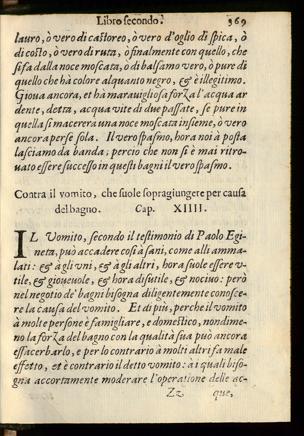 Libro secondo. 369
lauro, ò vero di castoreo, ò vero d'oglio di spica, ò
di costo, ò vero di ruta, ò finalmente con quello, che
si fa dalla noce moscata, ò di balsamo vero, ò pure di
quello che hà colore alquanto negro, & è illegitimo.
Gioua ancora, et hà marauigliosa forza l'acqua ar
dente, detta, acqua vite di due passate, se pure in
quella si macererà una noce moscata insieme, ò vero
ancora per se sola. Il vero spasmo, hora noi à posta
lasciamo da banda; percio che non si è mai ritro-
uato essere successo in questi bagni il vero spasmo.
Contra il vomito, che suole sopragiungere per causa
del bagno. Cap. XIIII.
IL Vomito, secondo il testimonio di Paolo Egi-
neta, può accadere così à sani, come alli amma-
lati: & à gli vni, & à gli altri, hora suole essere v-
tile, & gioueuole, & hora disutile, & nociuo: però
nel negotio de' bagni bisogna diligentemente conosce-
re la causa del vomito. Et di più, perche il vomito
à molte persone è famigliare, e domestico, nondime-
no la forza del bagno con la qualità sua può ancora
essacerbarlo, e per lo contrario à molti altri fa male
effetto, et è contrario il detto vomito: à i quali biso-
gna accortamente moderare l'operatione delle ac-
Zz que,